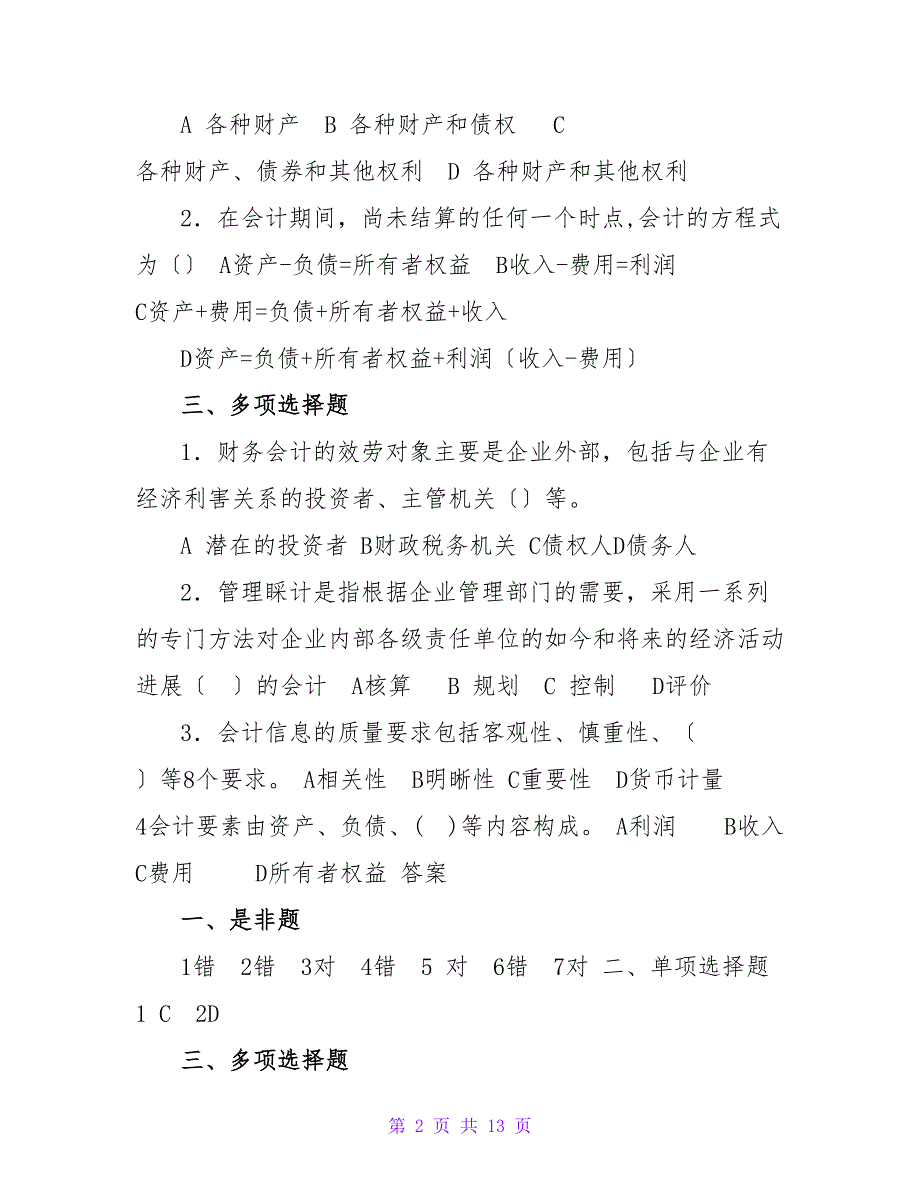 A 各种财产 B 各种财产和债权 C
各种财产、债券和其他权利 D 各种财产和其他权利
2．在会计期间，尚未结算的任何一个时点,会计的方程式
为〔〕 A资产-负债=所有者权益 B收入-费用=利润
C资产+费用=负债+所有者权益+收入
D资产=负债+所有者权益+利润〔收入-费用〕
三、多项选择题
1．财务会计的效劳对象主要是企业外部，包括与企业有
经济利害关系的投资者、主管机关〔〕等。
A 潜在的投资者 B财政税务机关 C债权人D债务人
2．管理睬计是指根据企业管理部门的需要，采用一系列
的专门方法对企业内部各级责任单位的如今和将来的经济活动
进展〔 〕的会计 A核算 B 规划 C 控制 D评价
3．会计信息的质量要求包括客观性、慎重性、〔
〕等8个要求。 A相关性 B明晰性 C重要性 D货币计量
4会计要素由资产、负债、( )等内容构成。 A利润 B收入
C费用 D所有者权益 答案
一、是非题
1错 2错 3对 4错 5 对 6错 7对 二、单项选择题
1 C 2D
三、多项选择题
第 2 页 共 13 页